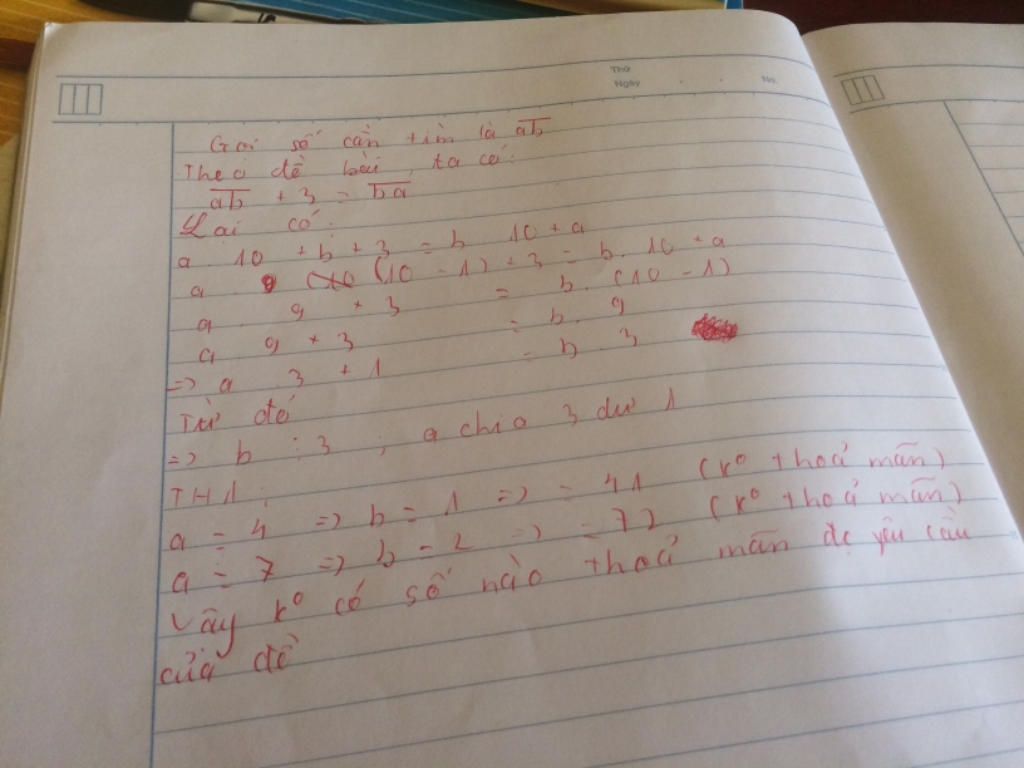 Thứ
Ngày . . No.
Gọi số cần tìm là ab
Theo đề bài ta có:
ab + 3 = ba
Lại có:
a 10 + b + 3 = b 10 + a
a (10 - 1) + 3 = b. 10 - a
a. 9 + 3 = b. (10 - 1)
a 9 + 3 = b. 9
=> a 3 + 1 = b 3
Từ đó
=> b : 3 ; a chia 3 dư 1
TH1:
a = 4 => b = 1 => = 41 (k° thoả mãn)
a = 7 => b = 2 => = 72 (k° thoả mãn)
Vậy k° có số nào thoả mãn đc yêu cầu
của đề